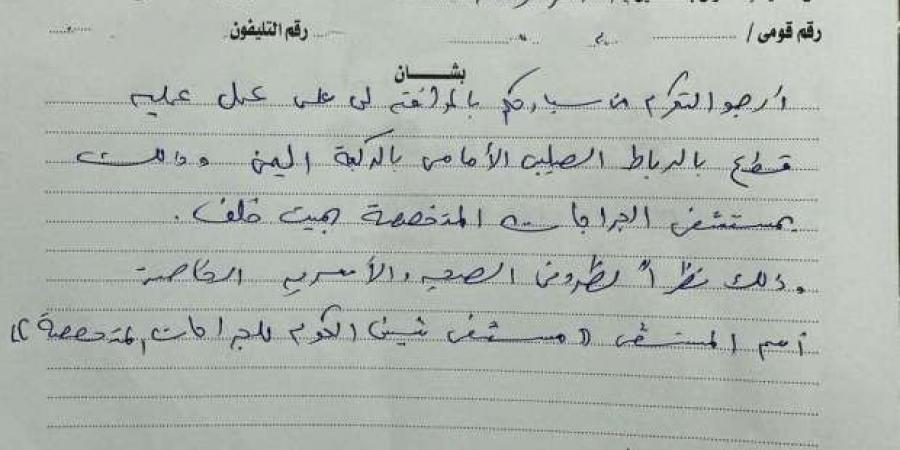 رقم قومى / رقم التليفون
بشـــان
أرجو التكرم من سيادتكم بالموافقة لى على عمل عمليه
قطع بالرباط الصليبى الأمامى بالركبة اليمنى وذلك
بمستشفى الجراجات المتخصصة بميت خلف.
وذلك نظراً لظروفى الصحيه والأسريه الخاصة
أسم المستشفى (( مستشفى شبين الكوم للجراحات المتخصصة ))